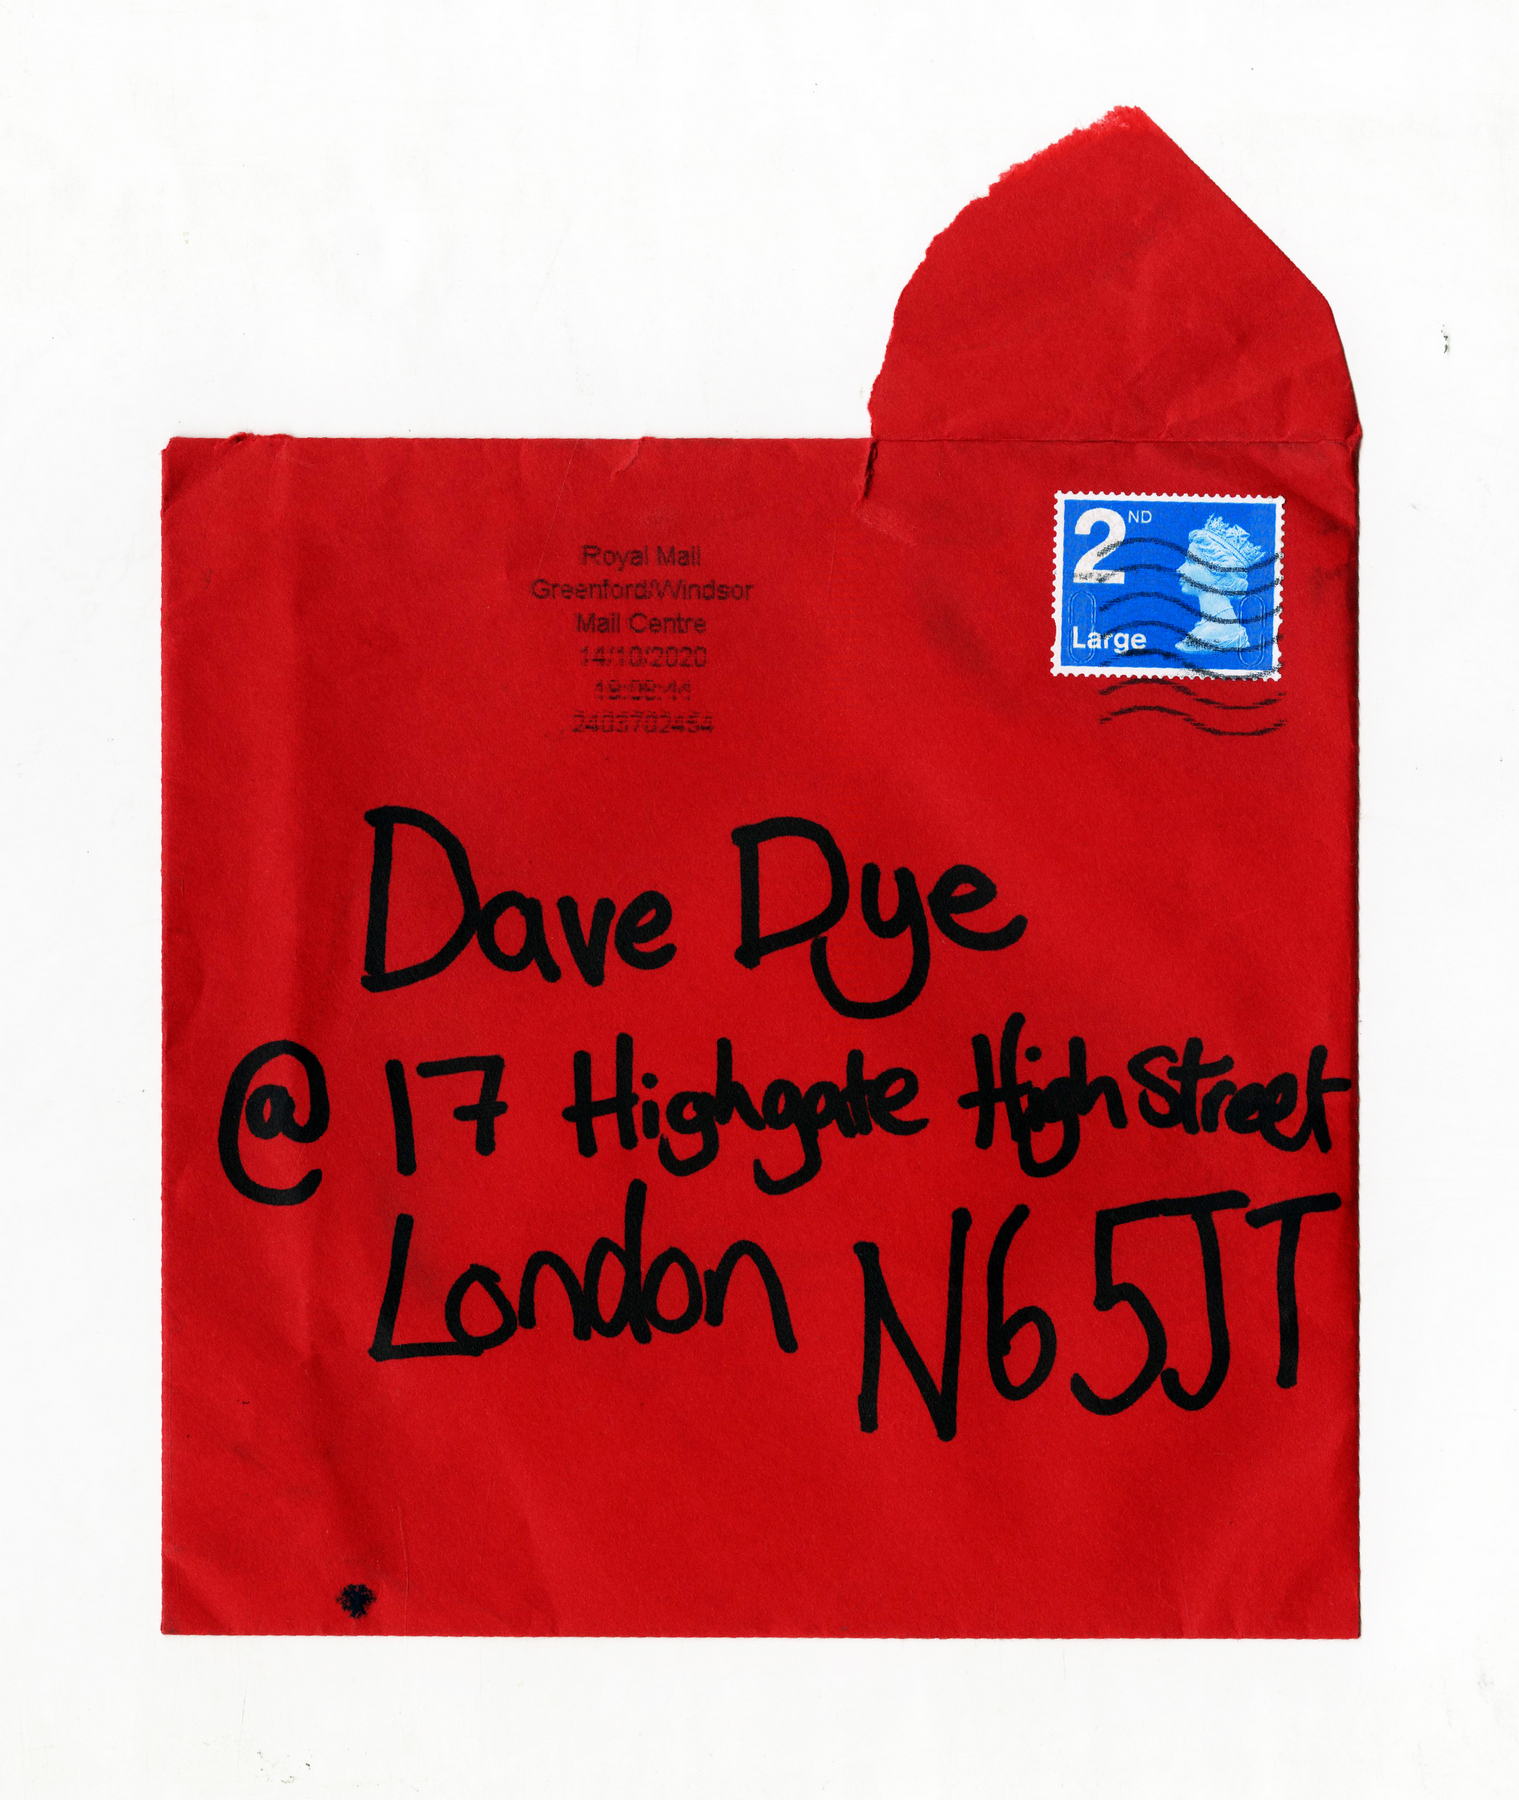 Royal Mail
Greenford/Windsor
Mail Centre
14/10/2020
2403702454
2ND
Large
Dave Dye
@ 17 Highgate High Street
London N6 5JT